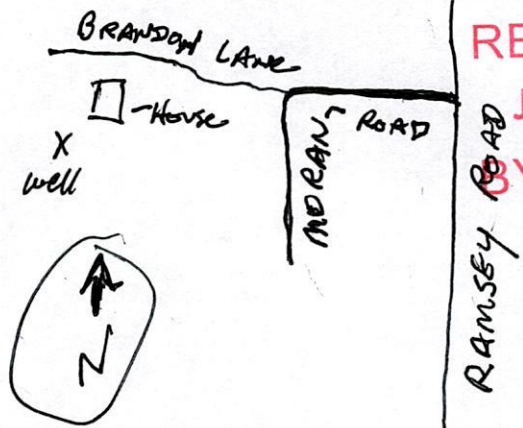 BRANDON LANE
House
X
well
MORANT
ROAD
RAMSEY ROAD
N
RE
J
BY